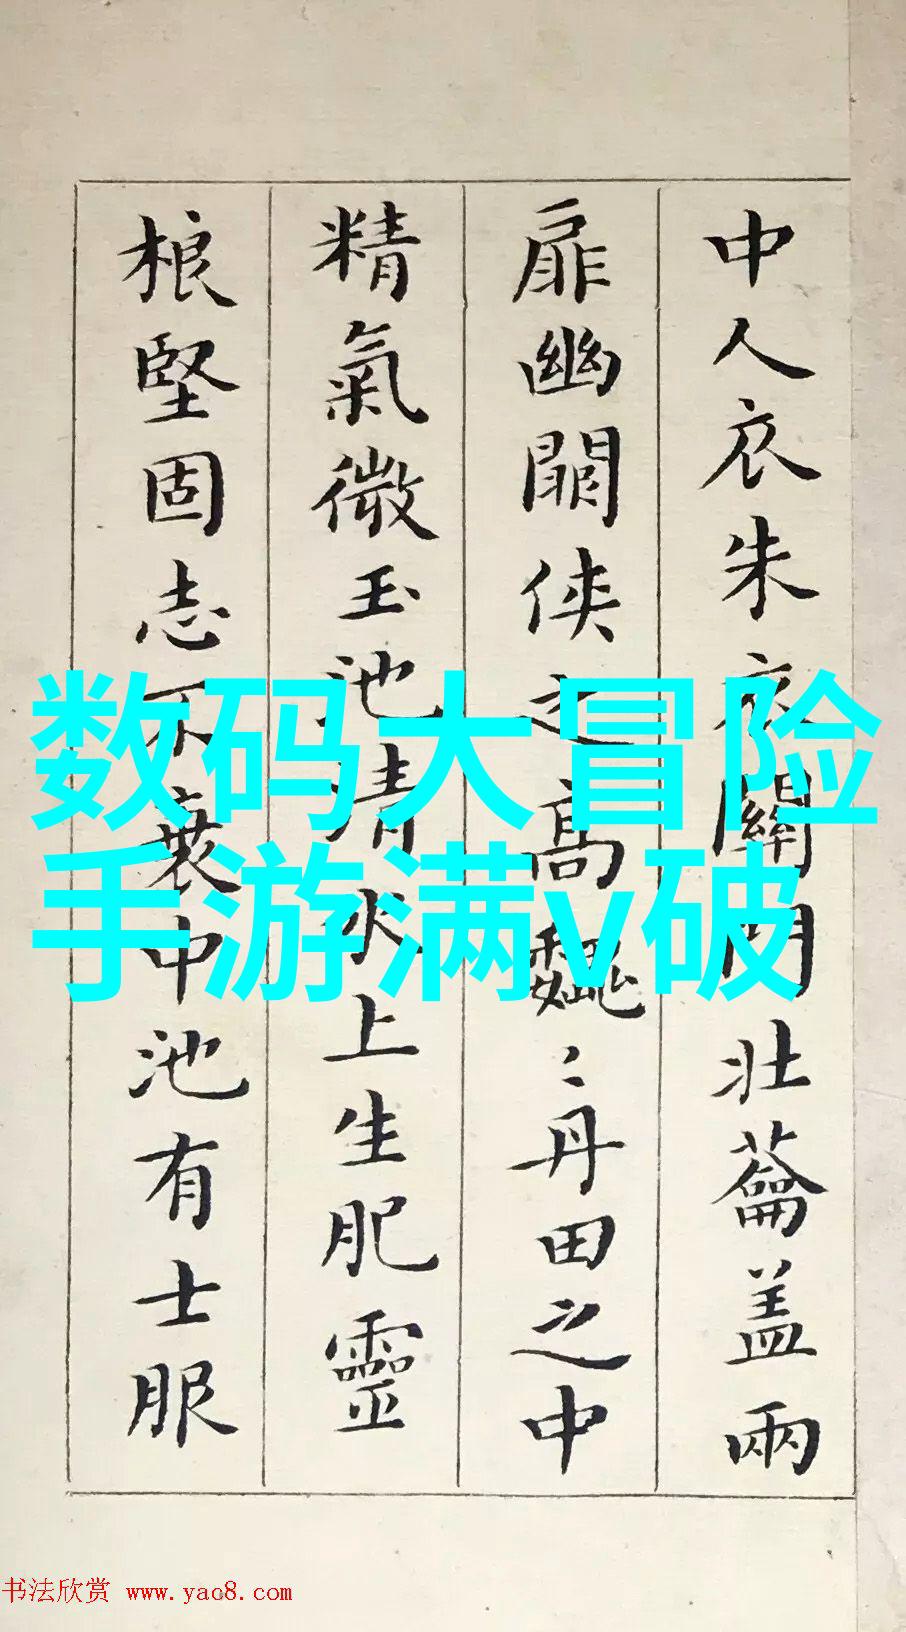 中人衣朱衣關門壯蘥盖兩
扉幽關侠之高巍〻丹田之中
精氣微玉池清水上生肥靈
根堅固志不衰中池有士服
数码大冒险
手游满v破
书法欣赏 www.yac8.com